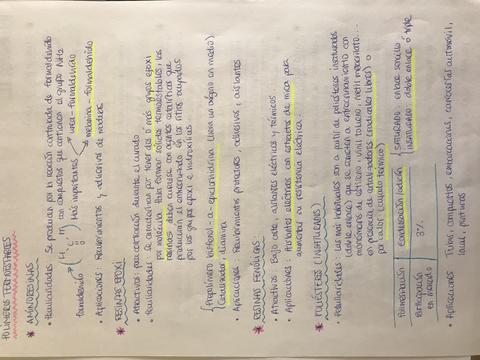 POLÍMEROS TERMOESTABLES
* AMINORESINAS
• Peculiaridades: Se producen por la reacción controlada de formaldehído
con compuestos que contienen el grupo NH2
formaldehído Más importantes urea-formaldehído
melamina-formaldehído
• Aplicaciones: Recubrimientos y adhesivos de madera
* RESINAS EPOXI
• Atractivos: poca contracción durante el curado
• Peculiaridades: Se caracterizan por tener dos ó más grupos epoxi
por molécula. Para formar sólidos termoestables, las
resinas deben curarse con agentes
producirán el entrecruzado en los sitios ocupados
por los grupos epoxi e hidroxílicos
Prepolímero bisfenol-a-epiclorhidrina (lleva un oxígeno en medio)
Catalizador, diamina
• Aplicaciones: Recubrimientos protectores, adhesivos, aislantes
* RESINAS FENÓLICAS:
• Atractivos: Bajo coste, aislantes eléctricos y térmicos
• Aplicaciones: Aislantes eléctricos con estructura de mica para
aumentar su resistencia eléctrica.
* POLIÉSTERES (INSATURADOS)
• Peculiaridades: Las más habituales son a partir de poliésteres insaturados
doble enlace que se someten a entrecruzamiento con
monómeros de estireno, vinil tolueno, metil metacrilato...
en presencia de catalizadores (radicales libres) o
por calor (curado térmico)
Polimerización Condensación/adición
Participación en mercado 9%
SATURADO: enlace sencillo
INSATURADO: doble enlace ó triple
• Aplicaciones: compuestos, embarcaciones, carrocerías automóvil,
pinturas